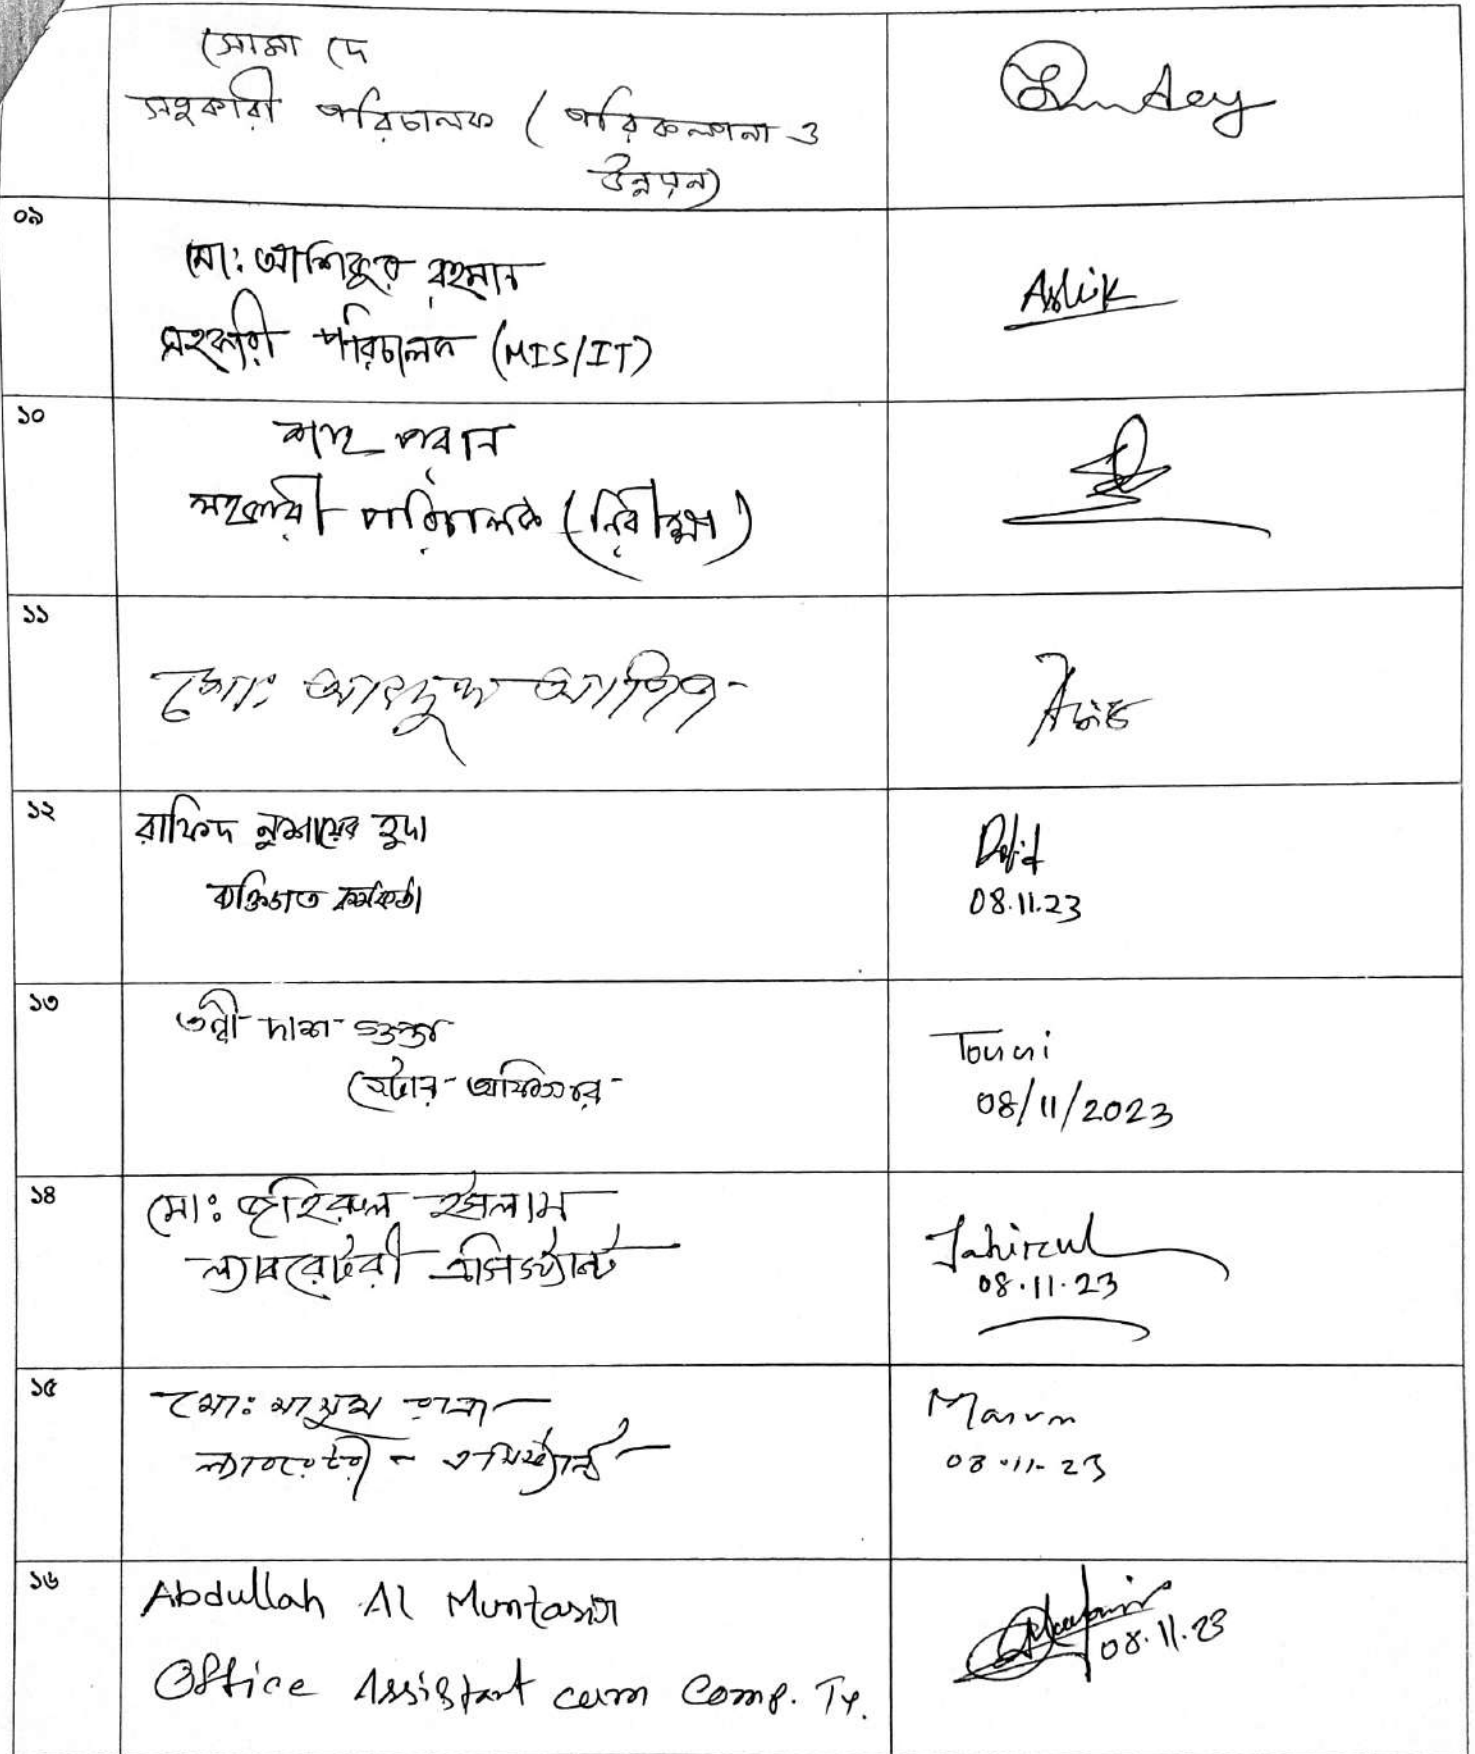 সোমা দে
সহকারী পরিচালক (পরিকল্পনা ও
উন্নয়ন)
Dey
০৯
মো: আশিকুর রহমান
সহকারী পরিচালক (MIS/IT)
Ashik
১০
শাহ পরান
সহকারী পরিচালক (নিরীক্ষা)
১১
মো: আবদুল আজিজ
Aziz
১২
রাফিদ নুশায়ের হুদা
ব্যক্তিগত কর্মকর্তা
Rafid
08.11.23
১৩
তন্বী দাশ গুপ্তা
স্টোর অফিসার
Tonni
08/11/2023
১৪
মো: জহিরুল ইসলাম
ল্যাবরেটরী এসিস্ট্যান্ট
Jahirul
08.11.23
১৫
মো: মাসুম রানা
ল্যাবরেটরী এসিস্ট্যান্ট
Masum
08.11.23
১৬
Abdullah Al Muntasir
Office Assistant cum Comp. Ty.
08.11.23